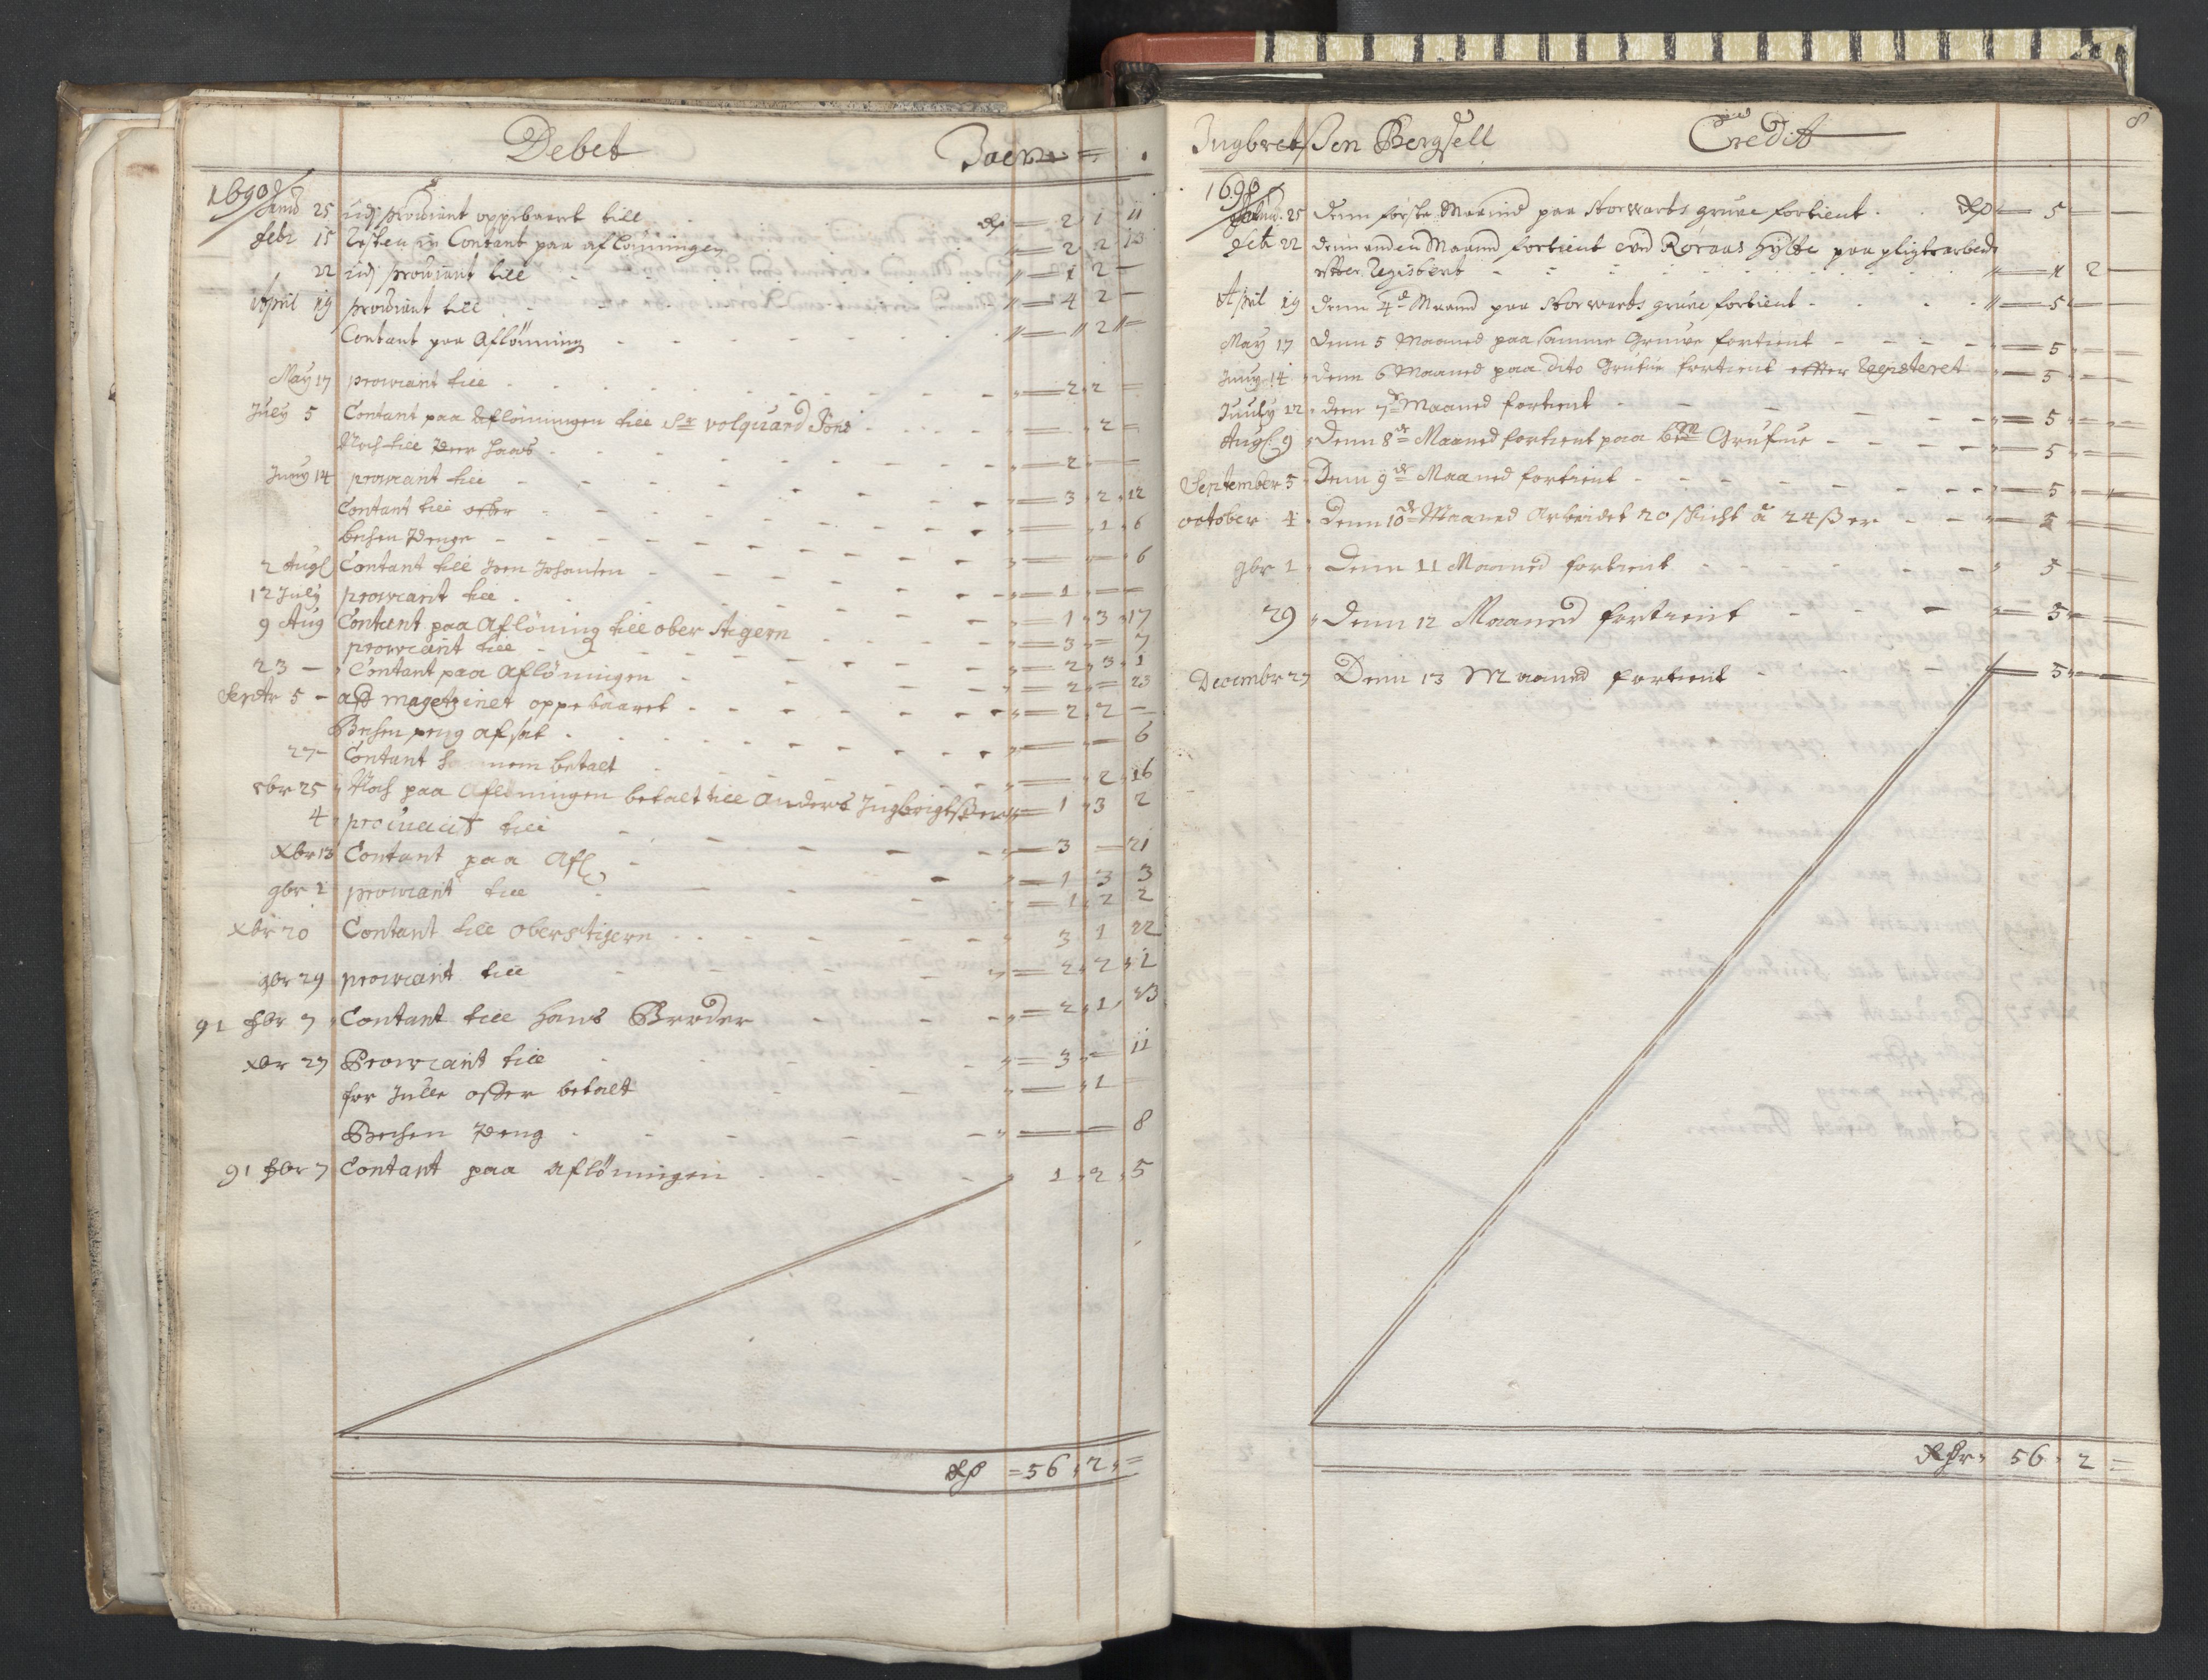 Debet
Joen
1690
Janu 25 udj prowiant oppebaaret till Rd 2 1 11
Febr 15 Resten in Contant paa aflönningen 2 2 13
22 udj prowiant till 1 2 —
April 19 prowiant till 4 2 —
Contant paa Aflönning 2
May 17 prowiant till 2 2
July 5 Contant paa Aflönningen till Sr volquard 2
Noch till Peer 2
Juny 14 prowiant till 3 2 12
Contant till offer 1 6
bechen Penge 6
2 Augl Contant till Joen Johansen 1
12 July prowiant till 1 3 17
9 Aug Contant paa Aflöning till ober stigern 3 — 7
prowiant till 2 3 1
23 — Contant paa Aflönningen 2 — 23
Septr 5 — aff magetzinet oppebaaret 2 2 —
Bechen peng afsat 6
27 — Contant betalt 2 16
8br 25 Noch paa Aflönningen betalt till Anders Jngbrigtssen 1 3 2
4 prowiant till 3 — 21
Xbr 13 Contant paa Afl 1 3 3
9br 1 prowiant till 1 2 2
Xbr 20 Contant till oberstigern 3 1 22
9br 29 prowiant till 2 2 1
91 Fbr 7 Contant till Hans Broder 2 1 23
Xbr 27 Prowiant till 3 — 11
for Julle offer betalt 1
Bechen Peng 8
91 Fbr 7 Contant paa aflönningen 1 2 5
Rd 56 2
8
Jngbret Sen Bergsell Credit
1690
Janu. 25 denn förste Maanid paa Storwarts gruve fortient Rd 5 — —
Feb 22 denn anden Maand fortient ved Röraas Hytte paa pligtearbed
efter Registeret 1 2 —
April 19 denn 4de Maand paa Storwarts gruve fortient 5
May 17 denn 5 Maaned paa samme Gruve fortient 5
Juny 14 denn 6 Maaned paa dito Grufue fortient effter Registeret 5
Juuly 12 den 7de Maaned fortient 5
Augl 9 Denn 8de Maaned fortient paa bem Grufue 5
September 5 Denn 9de Maaned fortient 5
october 4 Denn 10de Maaned Arbeidet 20 schicht à 24 ß er 5
9br 1 Denn 11 Maaned fortient 5
29 Denn 12 Maaned fortient 5
Decembr 27 Denn 13 Maaned fortient 5
Rdr 56 2